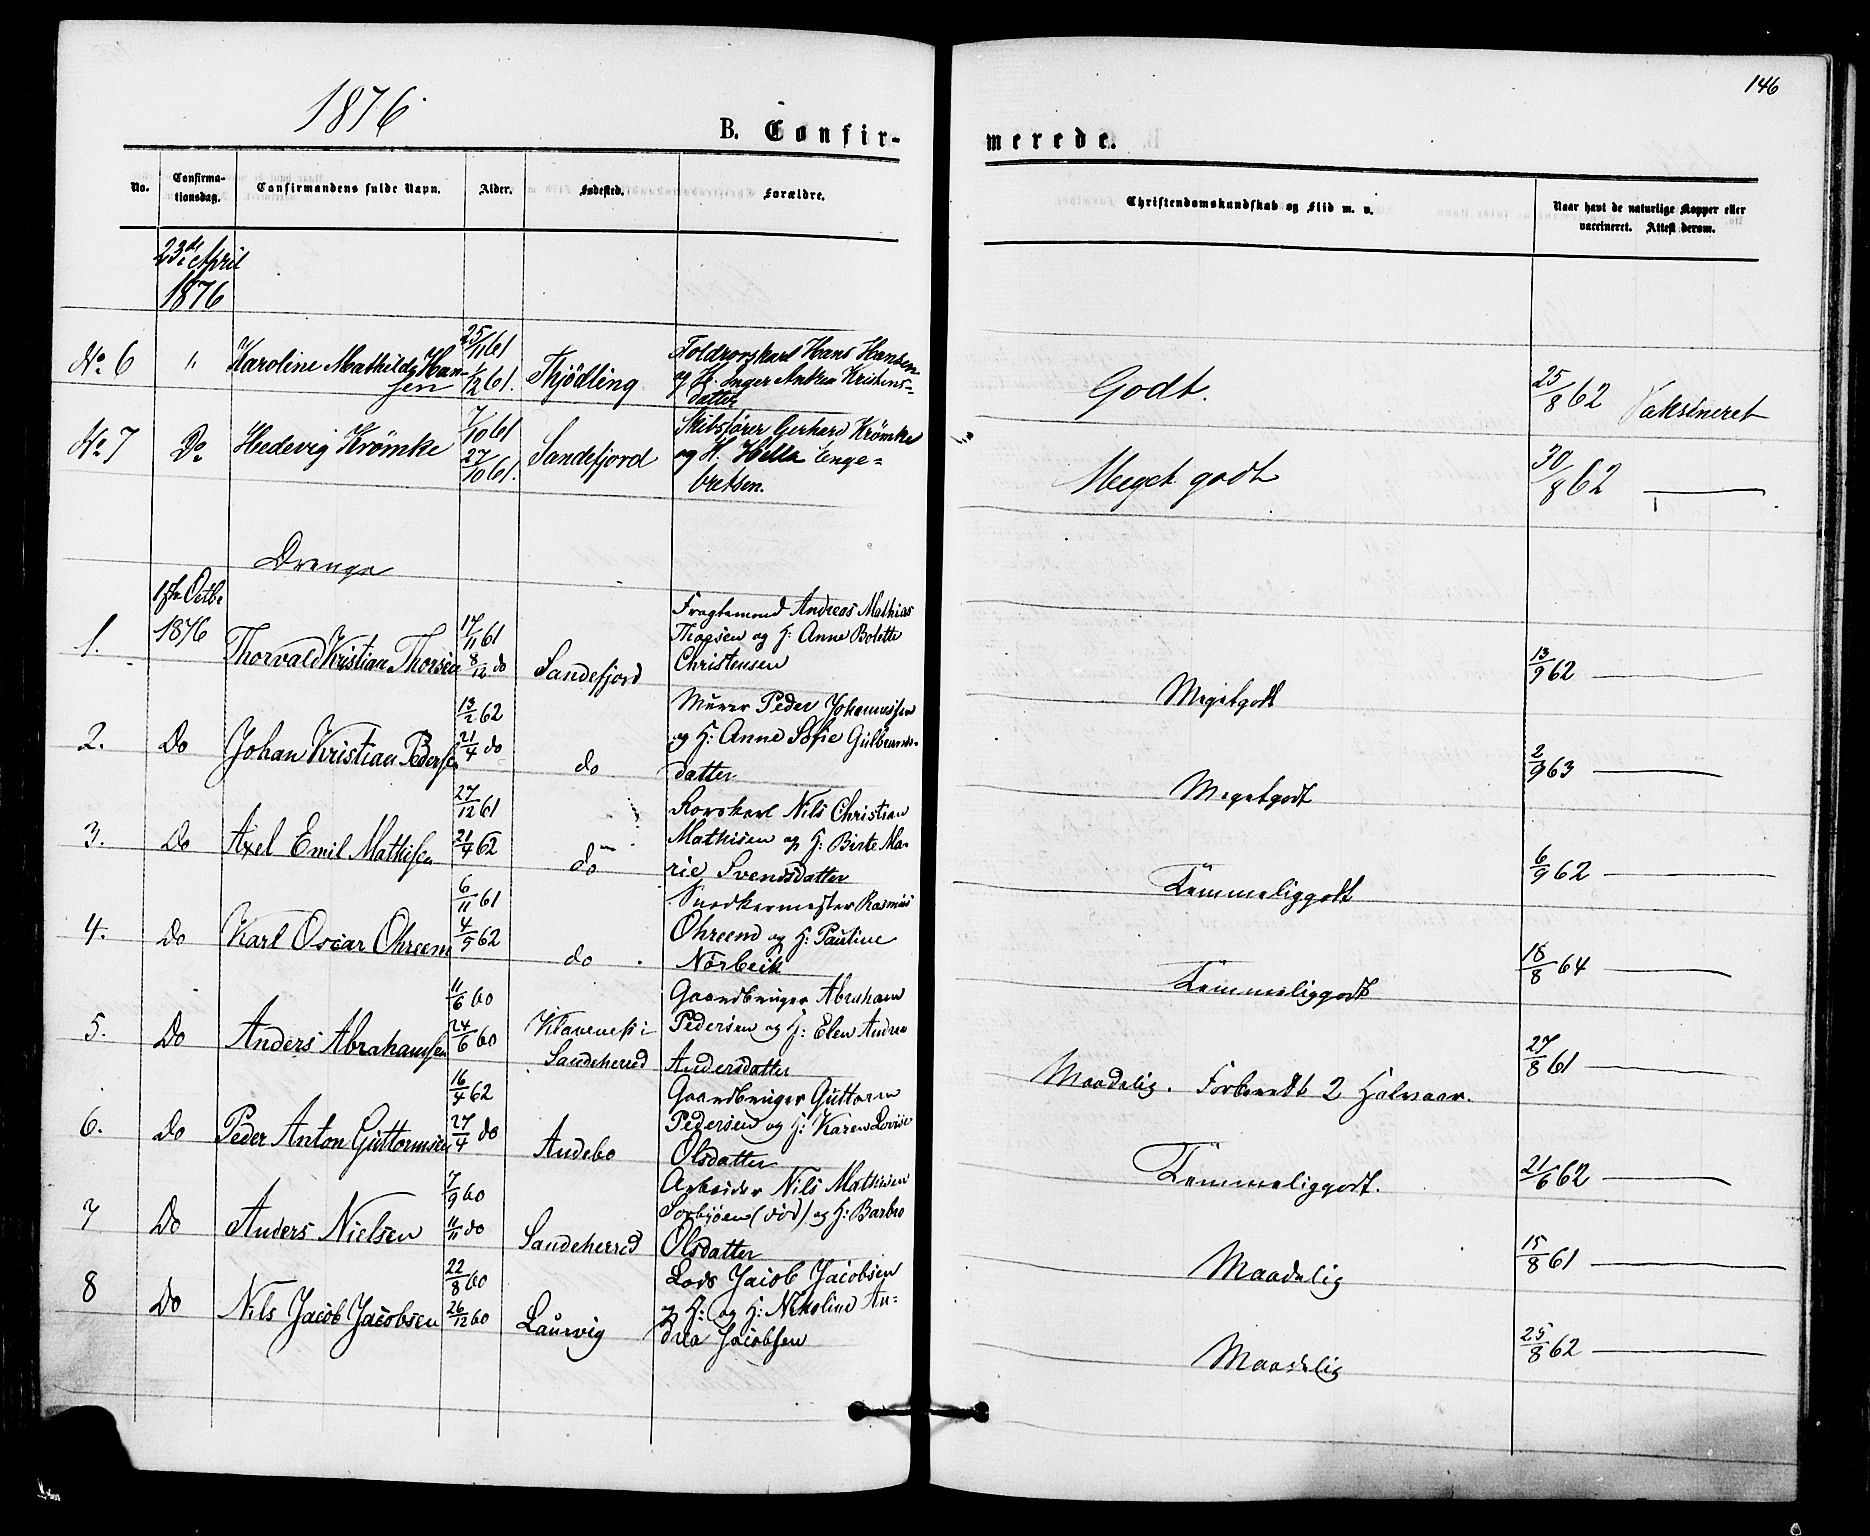 1876.
146
B. Confir-
merede.
No.
Confirma-
tionsdag.
Confirmandens fulde Navn.
Alder.
Fødested.
Forældre.
Christendomskundskab og Flid m. v.
Naar havt de naturlige Kopper eller
vaccineret. Attest derom.
23de April
1876
No 6 " Karoline Mathilde Han-
sen
25/11 61
1/12 61.
Thjödling
Toldrorskarl Hans Hansen
og H. Inger Andrea Kristens-
datter
Godt.
25/8 62 Vaksineret
No 7 Do Hedevig Krömke
7/10 61
27/10 61.
Sandefjord
Skibsfører Gerhard Krömke
og H. Hella Enge-
bretsen.
Meget godt
30/8 62
Drenge
1ste Octbr
1876
1. Thorvald Kristian Thorsen
17/11 61
8/12 do
Sandefjord
Fragtemand Andreas Mathias
Thorsen og H: Anne Bolette
Christensen
Megetgodt
13/9 62
2. Do Johan Kristian Pedersen
13/2 62
21/4 do
do
Murer Peder Johannessen
og H: Anne Sofie Gulbrands-
datter
Megetgodt
2/9 63
3. Do Axel Emil Mathisen
27/12 61
21/4 62
do
Rorskarl Nils Christian
Mathisen og H: Birte Ma-
rie Svendsdatter
Temmeliggodt
6/9 62
4. Do Karl Oscar Ohreend
6/11 61
4/5 62
do
Snedkermester Rasmus
Ohreend og H: Pauline
Temmeliggodt
18/8 64
5. Do Anders Abrahamsen
11/6 60
24/6 60
Klavenes i
Sandeherred
Gaardbruger Abraham
Pedersen og H: Elen Andrea
Andersdatter
Maadelig. Forberedt 2 Halvaar.
27/8 61
6. Do Peder Anton Guttormsen
16/4 62
27/4 do
Andebo
Gaardbruger Guttorm
Pedersen og H: Karen Lovise
Olsdatter
Temmeliggodt.
21/6 62
7 Do Anders Nielsen
7/9 60
11/11 do
Sandeherred
Arbeider Nils Mathisen
(död) og H: Barbro
Olsdatter
Maadelig
15/8 61
8 Do Nils Jacob Jacobsen
22/8 60
26/12 60
Laurvig
Lods Jacob Jacobsen
og H: Nikoline An-
drea Jacobsen
Maadelig
25/8 62